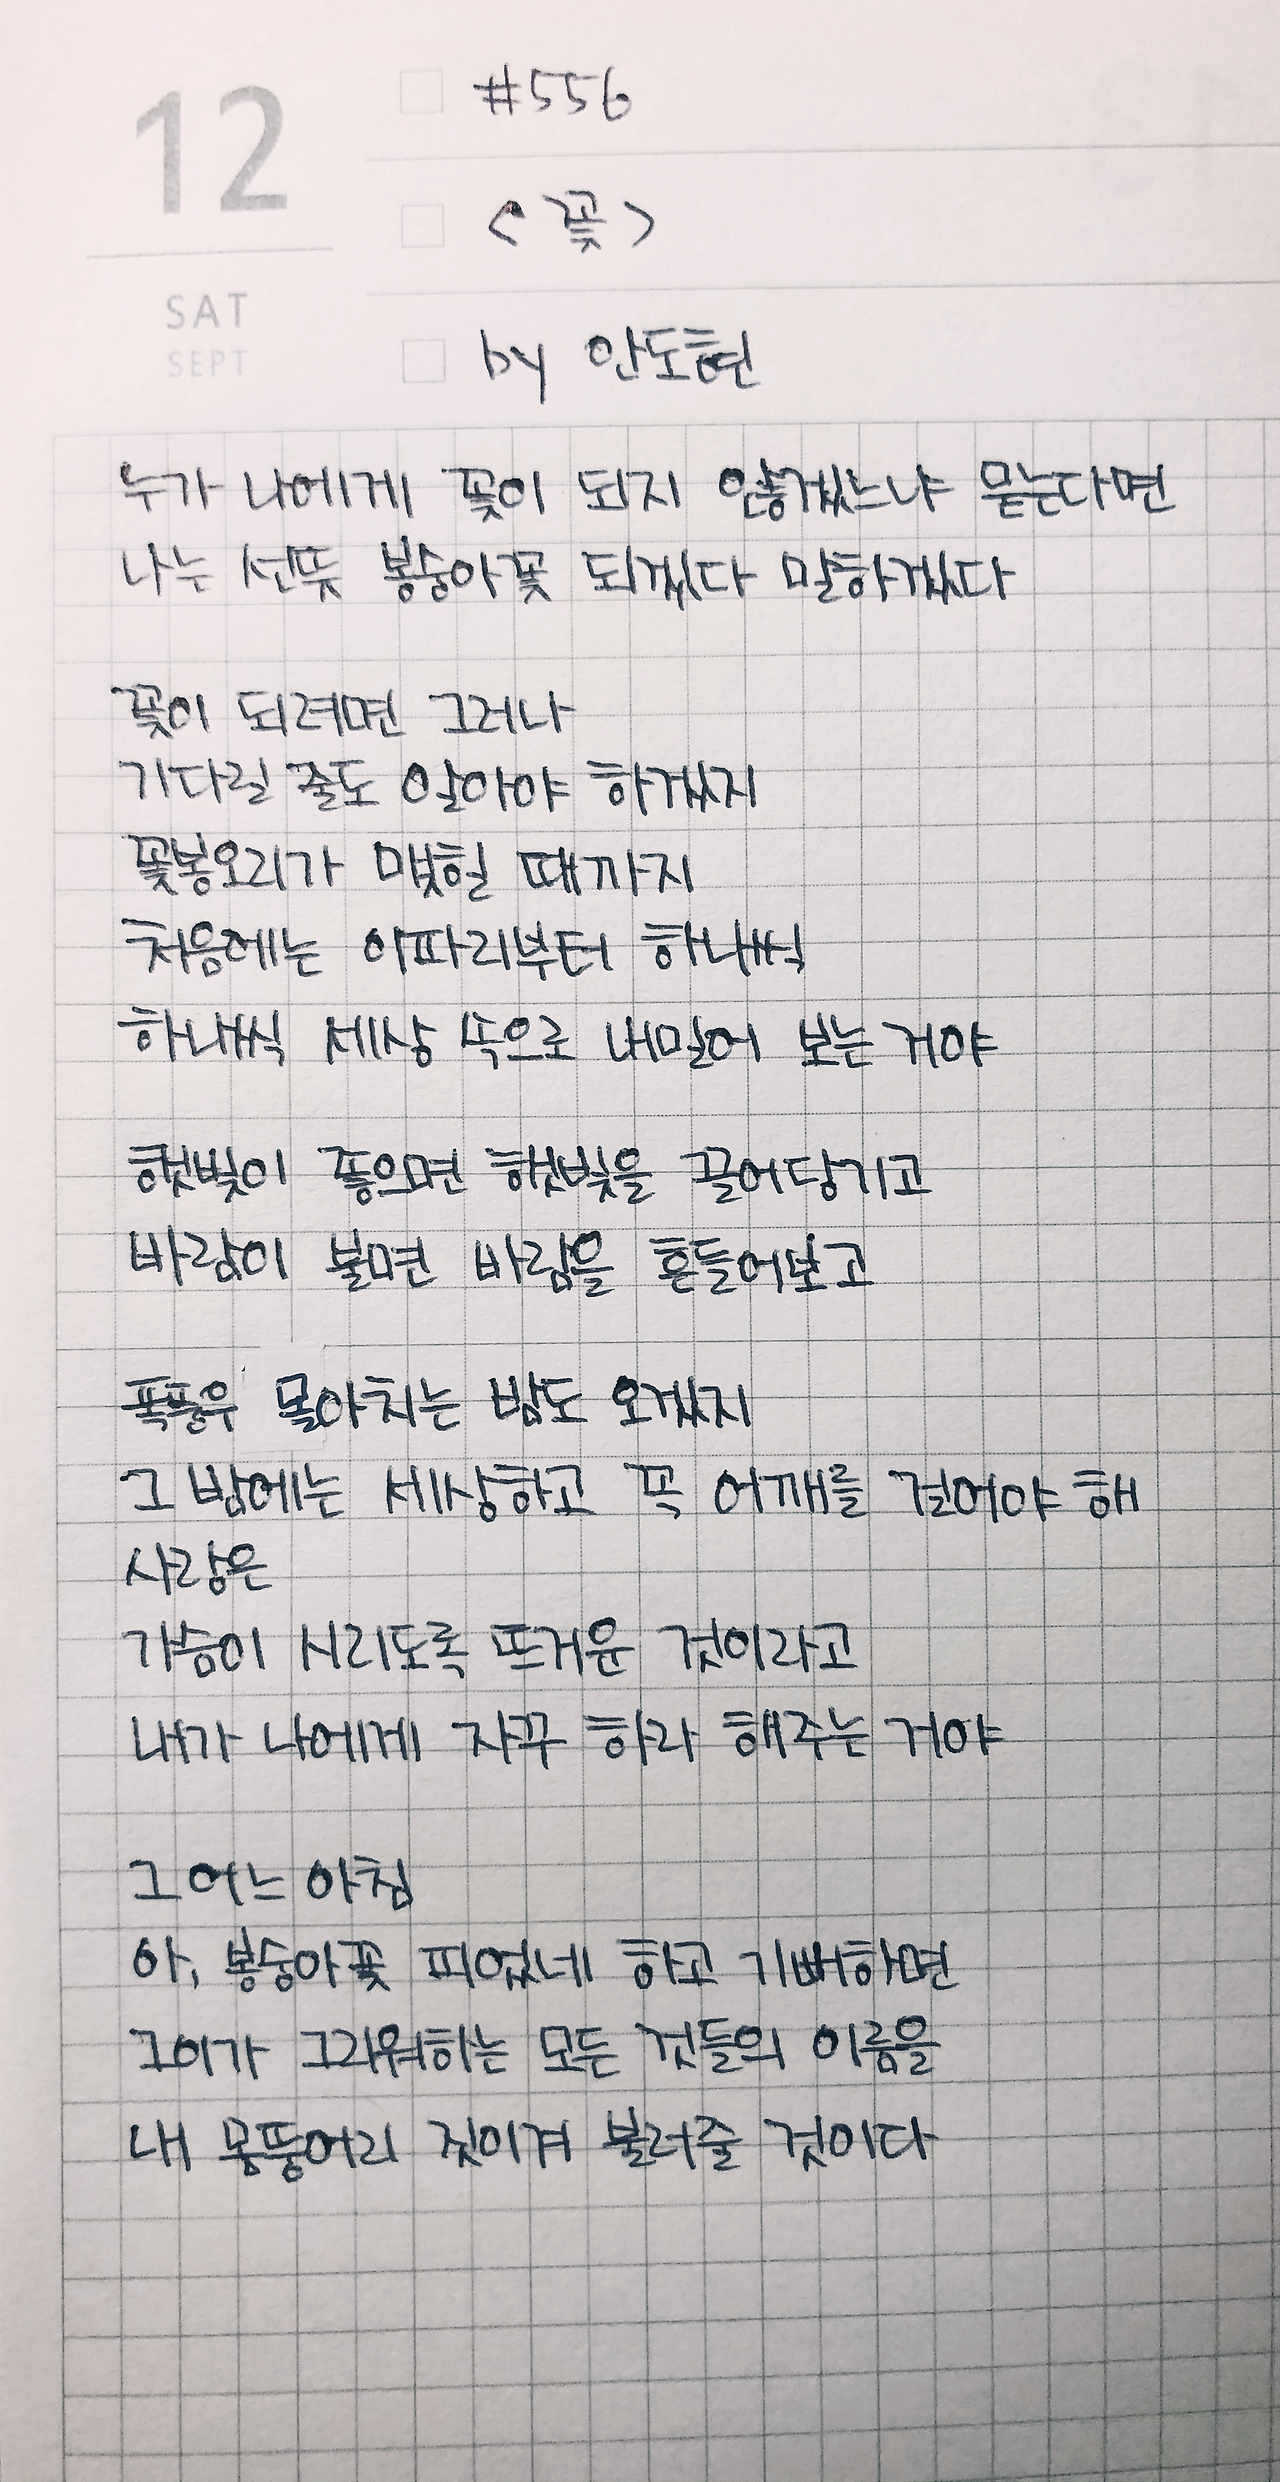 12
SAT
SEPT
#556
<꽃>
by 안도현
누가 나에게 꽃이 되지 않겠느냐 묻는다면
나는 선뜻 봉숭아꽃 되겠다 말하겠다
꽃이 되려면 그러나
기다릴 줄도 알아야 하겠지
꽃봉오리가 맺힐 때까지
처음에는 이파리부터 하나씩
하나씩 세상 속으로 내밀어 보는 거야
햇빛이 좋으면 햇빛을 끌어당기고
바람이 불면 바람을 흔들어보고
폭풍우 몰아치는 밤도 오겠지
그 밤에는 세상하고 꼭 어깨를 걸어야 해
사랑은
가슴이 시리도록 뜨거운 것이라고
내가 나에게 자꾸 하라 해주는 거야
그 어느 아침
아, 봉숭아꽃 피었네 하고 기뻐하면
그이가 그리워하는 모든 것들의 이름을
내 몸뚱어리 짓이겨 불러줄 것이다